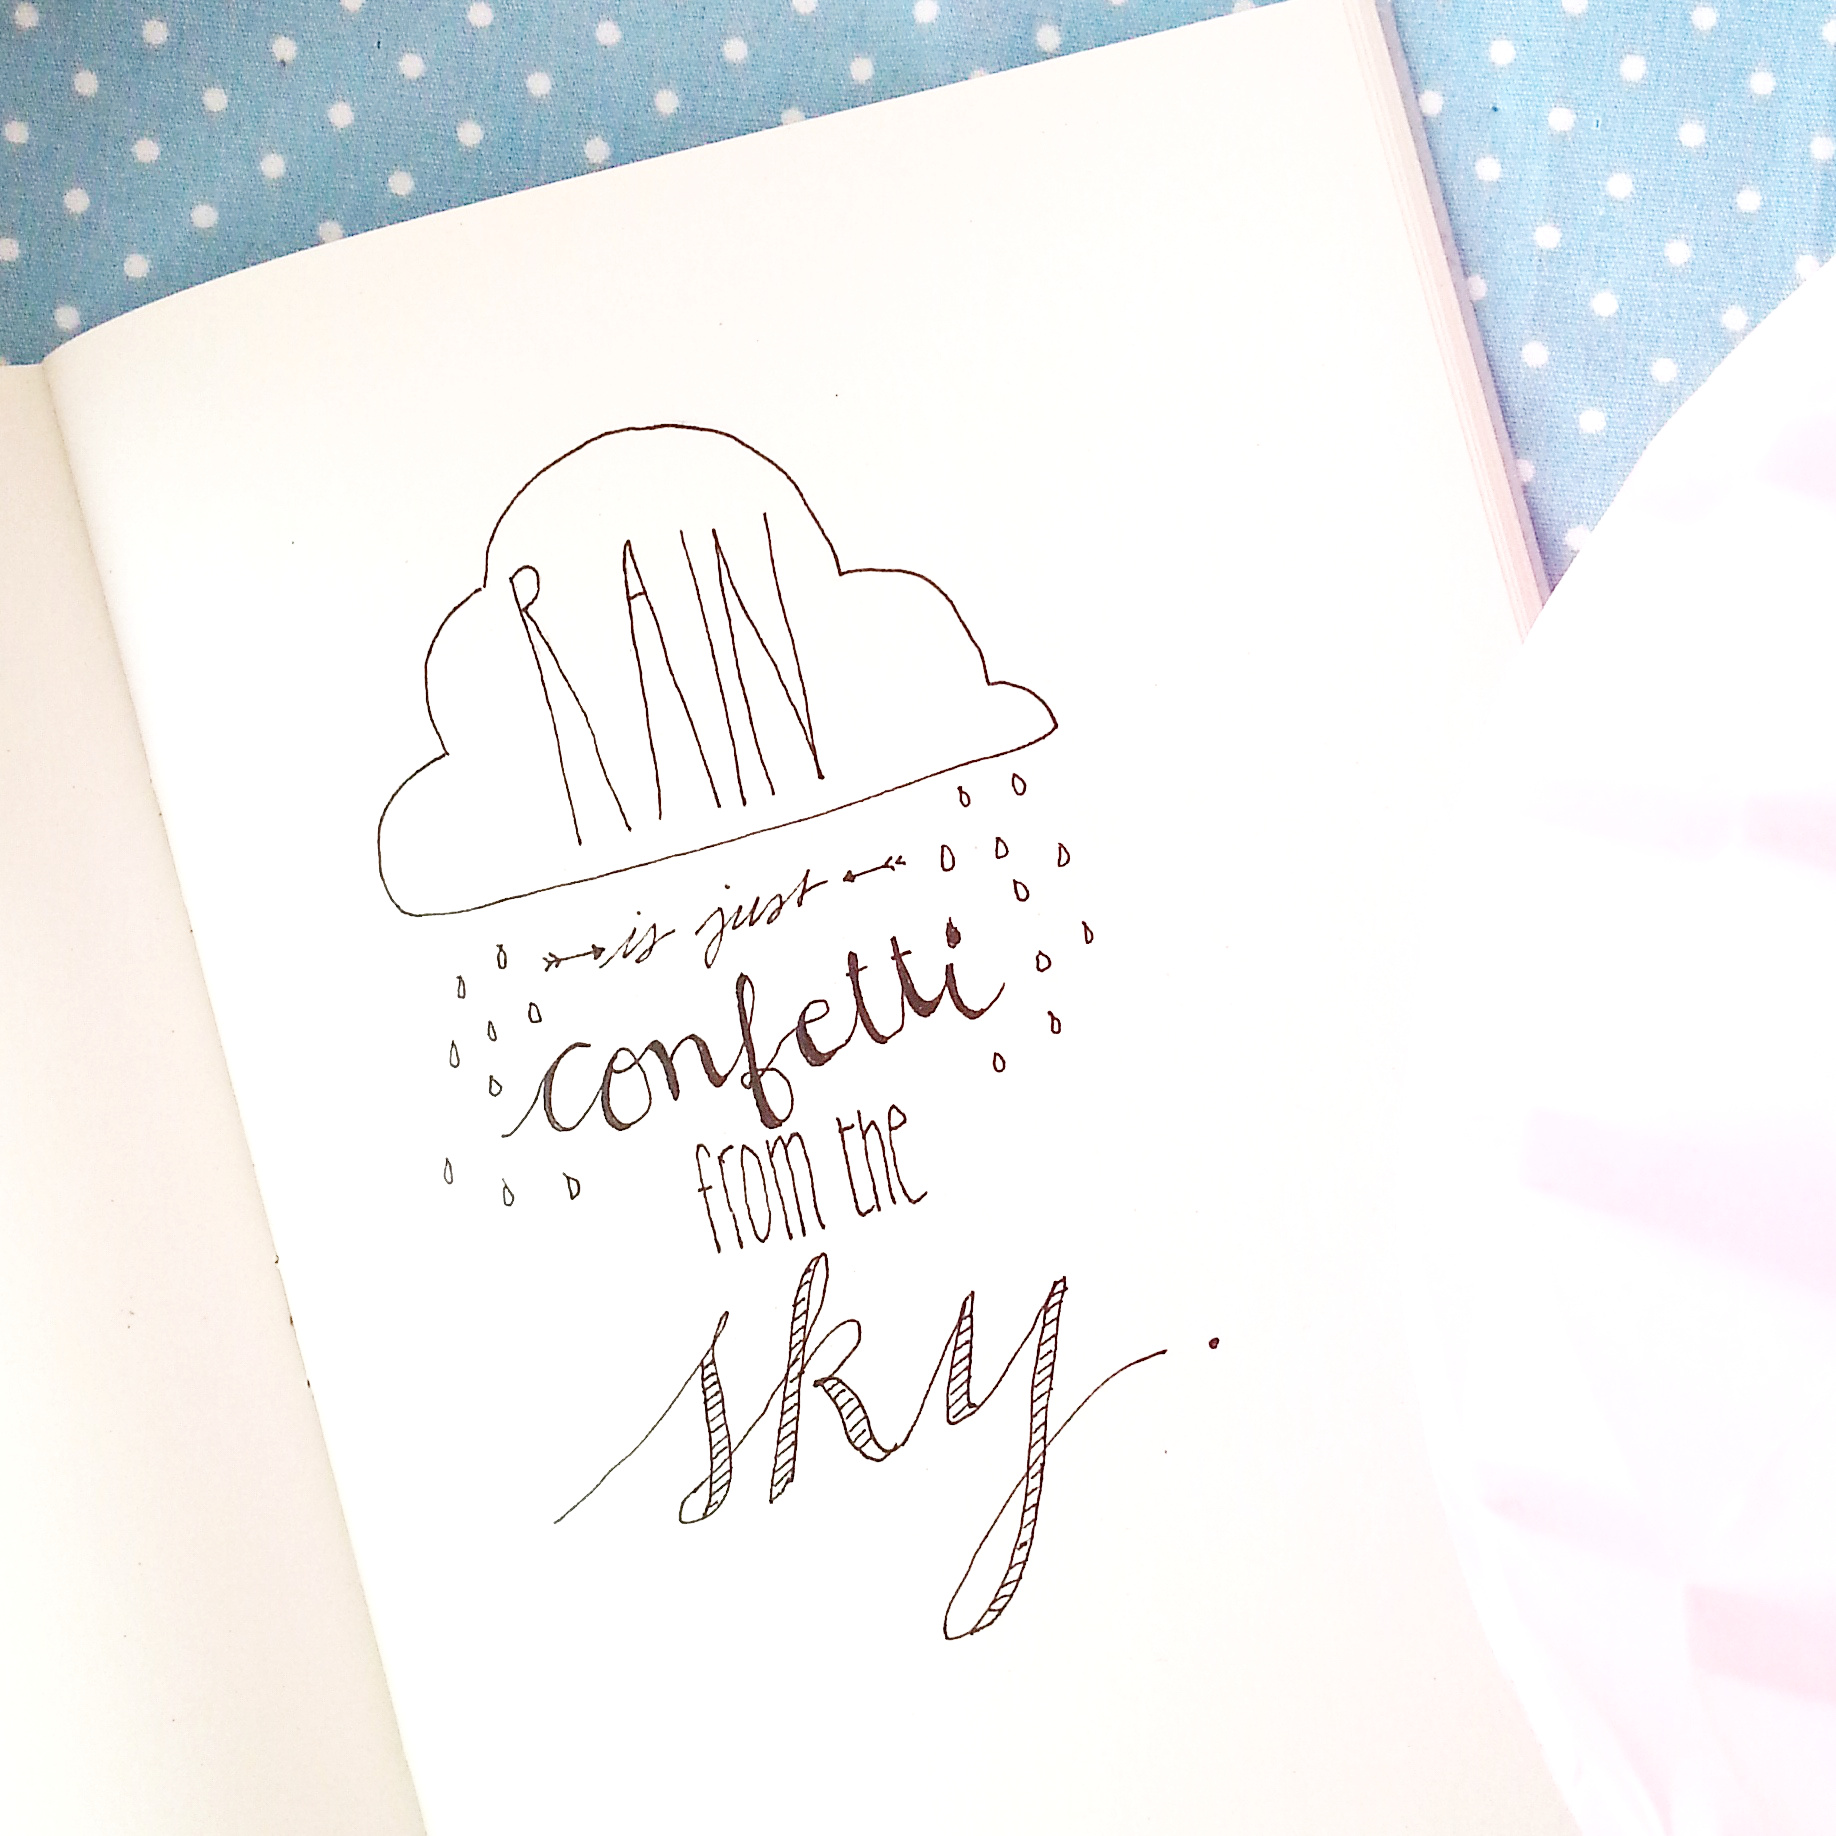 RAIN
is just
confetti
from the
sky.